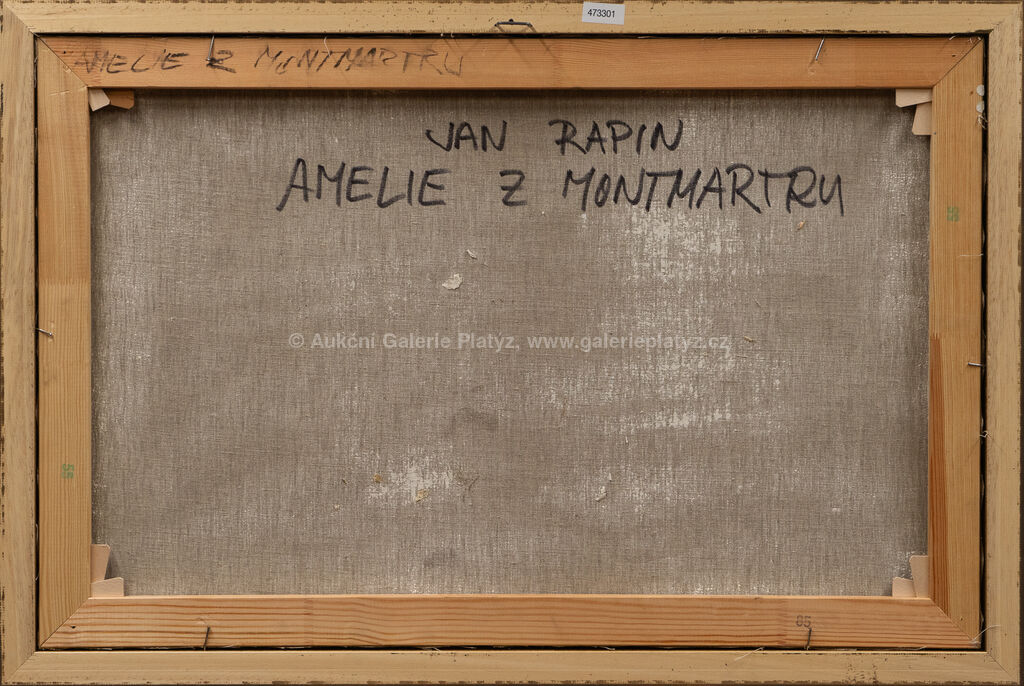 473301
AMELIE Z MONTMARTRU
JAN RAPIN
AMELIE Z MONTMARTRU
© Aukční Galerie Platýz, www.galerieplatyz.cz
85